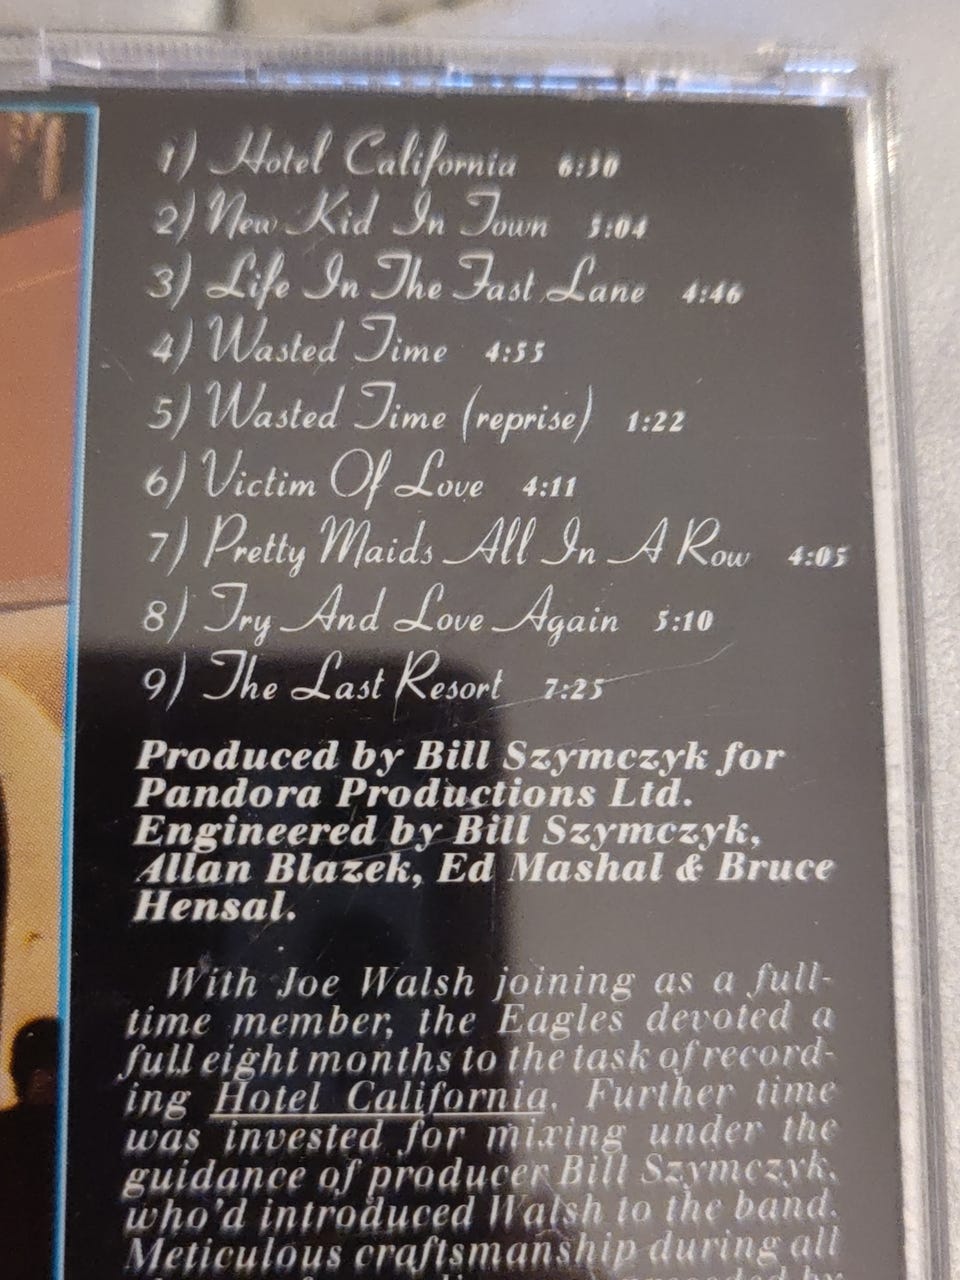 1) Hotel California 6:30
2) New Kid In Town 5:04
3) Life In The Fast Lane 4:46
4) Wasted Time 4:55
5) Wasted Time (reprise) 1:22
6) Victim Of Love 4:11
7) Pretty Maids All In A Row 4:05
8) Try And Love Again 5:10
9) The Last Resort 7:25
Produced by Bill Szymczyk for
Pandora Productions Ltd.
Engineered by Bill Szymczyk,
Allan Blazek, Ed Mashal & Bruce
Hensal.
With Joe Walsh joining as a full-
time member, the Eagles devoted a
full eight months to the task of record-
ing Hotel California. Further time
was invested for mixing under the
guidance of producer Bill Szymczyk,
who'd introduced Walsh to the band.
Meticulous craftsmanship during all